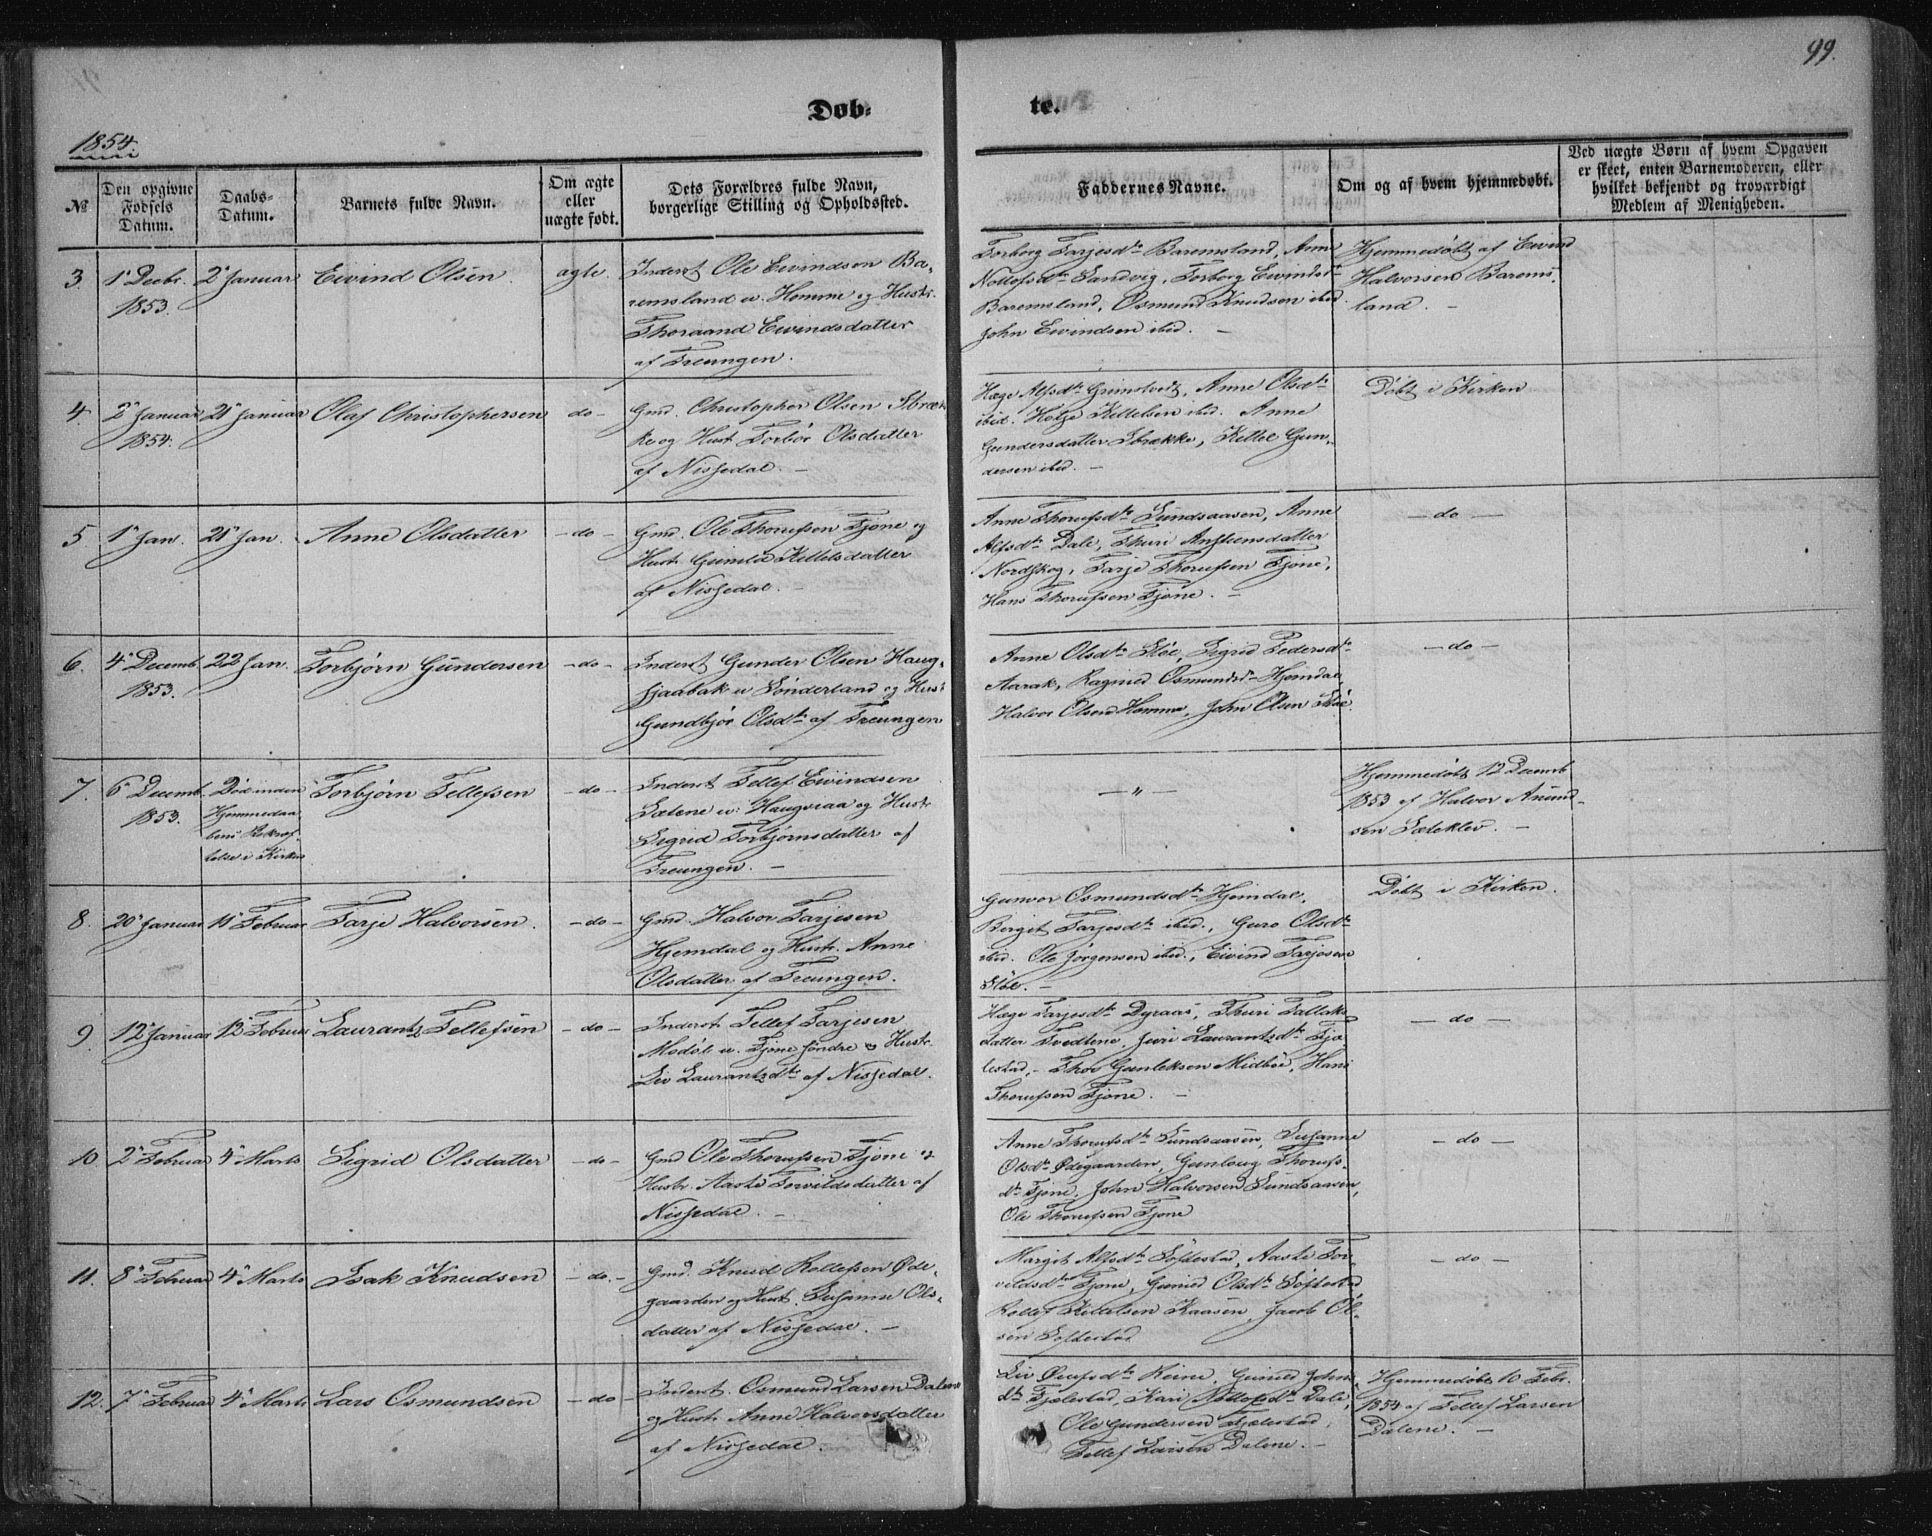 99.
Døb-
te.
1854.
№
Den opgivne
Fødsels
Datum.
Daabs-
Datum.
Barnets fulde Navn.
Om ægte
eller
uægte født.
Dets Forældres fulde Navn,
borgerlige Stilling og Opholdssted.
Faddernes Navne.
Om og af hvem hjemmedøbt.
Ved uægte Børn af hvem Opgaven
er skeet, enten Barnemoderen, eller
hvilket bekjendt og troværdigt
Medlem af Menigheden.
3
1' Decbr.
1853.
2' Januar
Eivind Olsen
ægte.
Inderst Ole Eivindsen Ba-
remsland u. Homme og Hustr.
Thoraand Eivindsdatter
af Treungen.
Torborg Tarjesdtr Baremsland, Anne
Nottofsdtr Sandvig, Torborg Eivindsdtr
Baremsland, Osmund Knudsen ibid.
John Eivindsen ibid.
Hjemmedøbt af Eivind
Halvorsen Barems-
land.
4.
2' Januar
1854.
21' Januar
Olaf Christophersen
do
Gmd. Christopher Olsen Sbræk-
ke og Hust. Torbør Olsdatter
af Nissedal.
Hæge Alfsdtr Grimstvedt, Anne Olsdtr
ibid. Helge Kittelsen ibid. Anne
Gundersdatter Sbrække, Kittel Gun-
dersen ibid.
Døbt i Kirken
5
1' Jan.
21' Jan.
Anne Olsdatter
do
Gmd. Ole Thorufsen Fjone og
Hust. Gunild Kittelsdatter
af Nissedal.
Anne Thorufsdtr Sundsaasen, Anne
Alfsdtr Dale, Thuri Anstensdatter
Nordskog, Tarje Thorufsen Fjone,
Hans Thorufsen Fjone.
do
6.
4' Decemb.
1853.
22 Jan.
Torbjørn Gundersen
do
Inderst Gunder Olsen Haug-
sjaabak u Sønderland og Hust.
Gundbjør Olsdtr af Treungen
Anne Olsdtr Støe, Sigrid Pedersdtr
Aarak, Ragnild Osmundsdtr Hjemdal,
Halvor Olsen Homme, John Olsen Støe.
do
7.
6' Decemb.
1853.
Død inden
Hjemmedaa-
bens Bekræf-
telse i Kirken
Torbjørn Tellefsen
do
Inderst Tellef Eivindsen
Sætene u. Haugsraa og Hustr
Sigrid Torbjørnsdatter af
Treungen.
Hjemmedøbt 12 Decemb
1853 af Halvor Anund-
sen Sæteklev.
8.
20' Januar
11' Februar
Tarje Halvorsen.
do
Gmd. Halvor Tarjesen
Hjemdal og Hustr. Anne
Olsdatter af Treungen.
Gunvor Osmundsdtr Hjemdal,
Bergit Tarjesdtr ibid., Guro Olsdtr
ibid. Ole Jørgensen ibid., Eivind Tarjesen
Støe.
Døbt i Kirken.
9.
12' Januar
12' Februar
Laurantz Tellefsen
do
Inderst Tellef Tarjesen
Modøl u. Fjone søndre & Hustr.
Liv Laurantzdtr af Nissedal.
Hæge Tarjesdtr Dyraas, Thuri Tallaks-
datter Tvedtene, Juri Laurantzdtr Fjæ-
lestad, Thor Gunleksen Midbøe, Hans
Thorufsen Fjone.
do
10
2' Februar
4' Marts
Sigrid Olsdatter
do
Gmd Ole Thorufsen Fjone og
Hustr. Aaste Torvildsdatter af
Nissedal.
Anne Thorufsdtr Sundsaasen, Susanne
Olsdtr Ødegaarden, Gunloug Thorufs-
dtr Fjone, John Halvorsen Sundsaasen,
Ole Thorufsen Fjone
do
11.
8' Februar
4' Marts
Isak Knudsen
do.
Gmd. Knud Rollefsen Øde-
gaarden og Hust. Susanne Ols-
datter af Nissedal.
Margit Alfsdtr Søftestad, Aaste Tor-
vildsdtr Fjone, Gunild Olsdtr Søftestad
Rollef Kittelsen Kaasen, Jacob Ol-
sen Søftestad
do
12.
7' Februar
4' Marts
Lars Osmundsen
do
Inderst. Osmund Larsen Dalene
og Hustr Anne Halvorsdatter
af Nissedal.
Liv Ørufsdtr Reine, Gunild Johns-
dtr Fjælestad, Kari Nottofsdtr Dale,
Ole Gundersen Fjælestad,
Tellef Larsen Dalene.
Hjemmedøbt 10 Febr.
1854 af Tellef Larsen
Dalene.